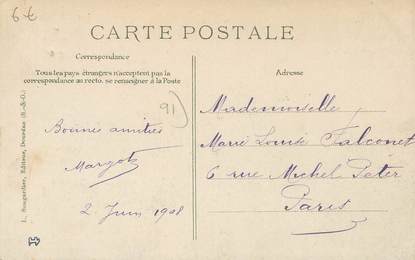 6€
CARTE POSTALE
Correspondance
Tous les pays étrangers n'acceptent pas la
correspondance au recto. se renseigner à la Poste
91
Bonnes amitiés
Margot
2 Juin 1908
Adresse
Mademoiselle
Marie Louise Falconet
6 rue Michel Peter
Paris
Éditeur, Dourdan (S.-&-O.)